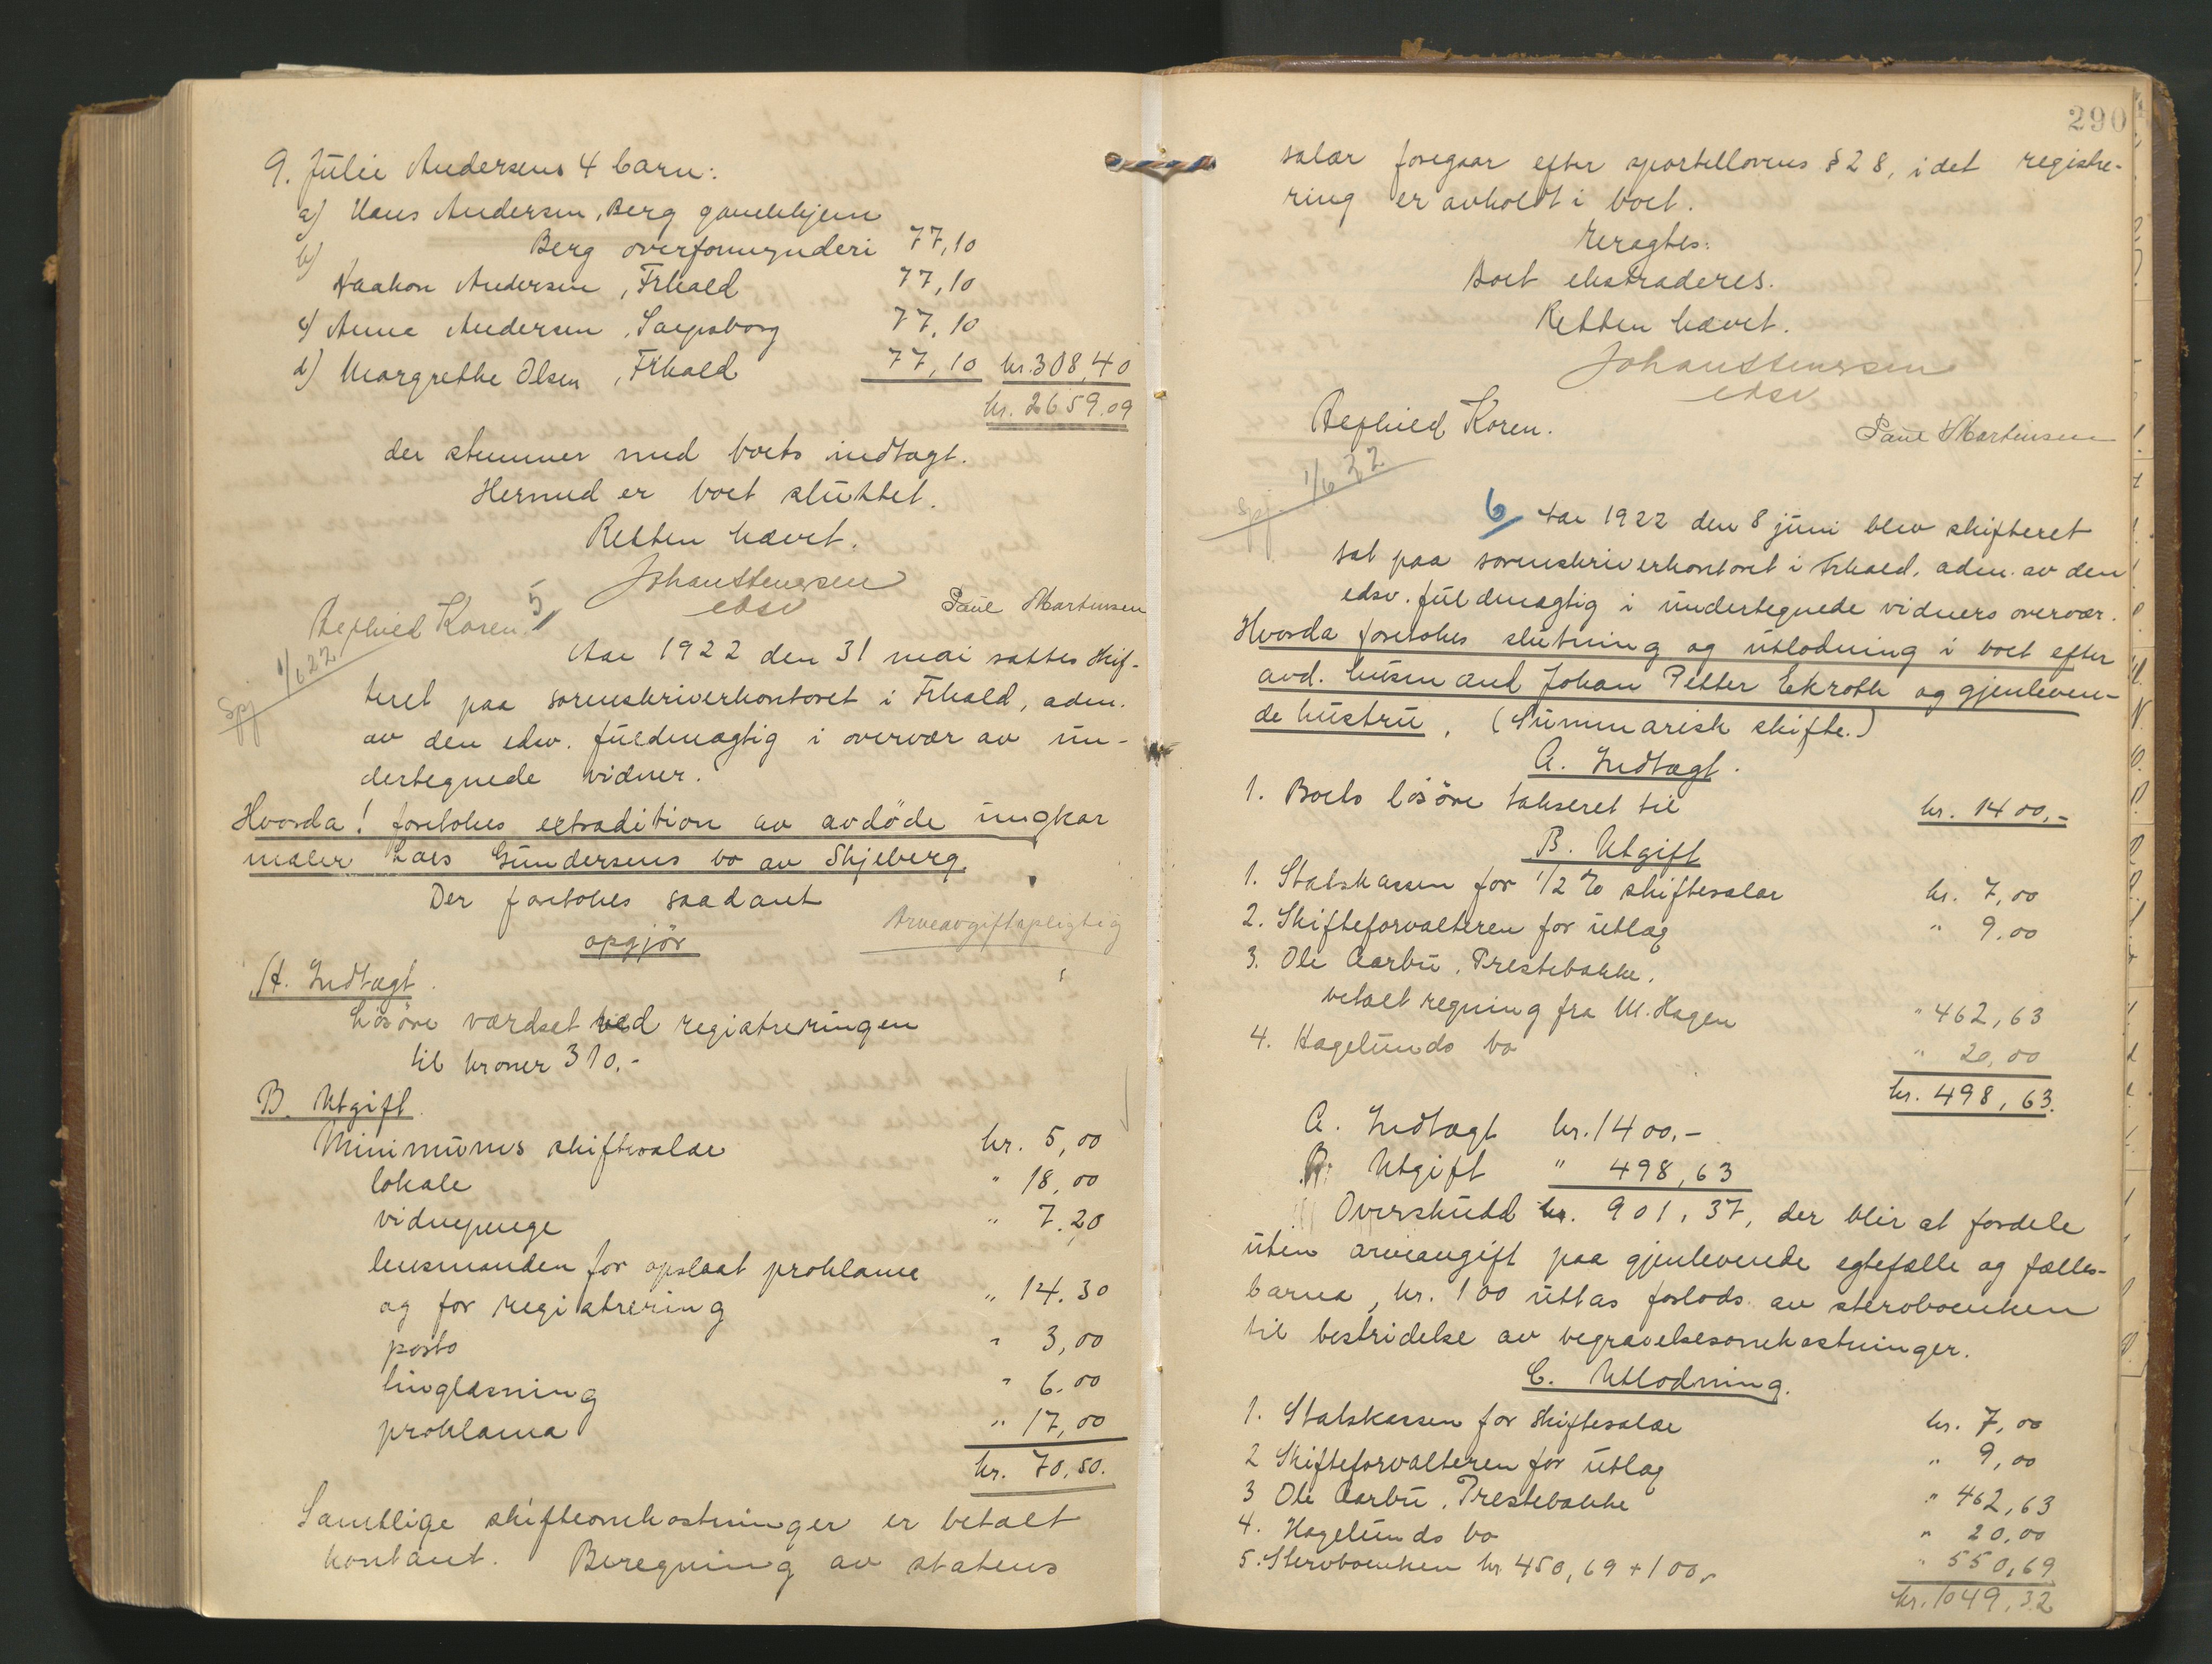 9. Julie Andersens 4 barn:
a) Hans Andersen, Berg gamlehjem
Berg overformynderi 77,10
b) Haakon Andersen, Frhald 77,10
c) Anna Andersen, Sarpsborg 77,10
d) Margrethe Olsen, Frhald 77,10 kr. 308,40
kr. 2659.09
der stemmer med boets indtægt.
Hermed er boet sluttet.
Retten hævet.
Johan Stenersen
edsv
Paul Martinsen
Koren.
1/6 22
5/
Aar 1922 den 31 mai sattes skif-
teret paa sorenskriverkontoret i Frhald, adm.
av den edsv. fuldmægtig i overvær av un-
dertegnede vidner.
Hvorda! foretokes extradition av avdøde ungkar
maler Lars Gundersens bo av Skjeberg.
Der foretokes saadant
opgjør
Arveavgiftspligtig
A. Indtægt.
Løsøre værdsat ved registreringen
til kroner 310.-
B. Utgift.
Minimums skiftesalær kr. 5,00
lokale " 18,00
vidnepenge " 7,20
lensmanden for opslaat proklama
og for registrering " 14.30
porto " 3,00
tinglæsning " 6.00
proklama " 17,00
kr. 70,50.
Samtlige skifteomkostninger er betalt
kontant. Beregning av statens
290
salær foregaar efter sportellovens § 28, idet registre-
ring er avholdt i boet.
Eragtes:
Boet ekstraderes.
Retten hævet.
Johan Stenersen
edsv
Koren.
Paul Martinsen
1/6 22
6/ Aar 1922 den 8 juni blev skifteret
sat paa sorenskriverkontoret i Frhald, adm. av den
edsv. fuldmægtig i undertegnede vidners overvær.
Hvorda foretokes slutning og utlodning i boet efter
avd. husmand Johan Petter Ekroth og gjenleven-
de hustru, (Summarisk skifte.)
A. Indtægt.
1. Boets løsøre takseret til kr. 1400,-
B. Utgift
1. Statskassen for 1/2 % skiftesalær kr. 7,00
2. Skifteforvalteren for utlæg " 9.00
3. Ole Aarbu, Prestebakke,
betalt regning fra M. Hagen " 462,63
4. Hagelunds bo " 20,00
kr. 498,63.
A. Indtægt kr. 1400.-
B. Utgift " 498,63
Overskudd kr. 901,37, der blir at fordele
uten arveavgift paa gjenlevende egtefælle og fælles-
barna, kr. 100 uttas forlods av sterboenken
til bestridelse av begravelsesomkostninger.
C. Utlodning.
1. Statskassen for skiftesalær kr. 7,00
2 Skifteforvalteren for utlæg " 9,00
3 Ole Aarbu, Prestebakke " 462,63
4. Hagelunds bo " 20,00
5. Stervboenken kr 450,69 + 100,- " 550,69
kr. 1049,32